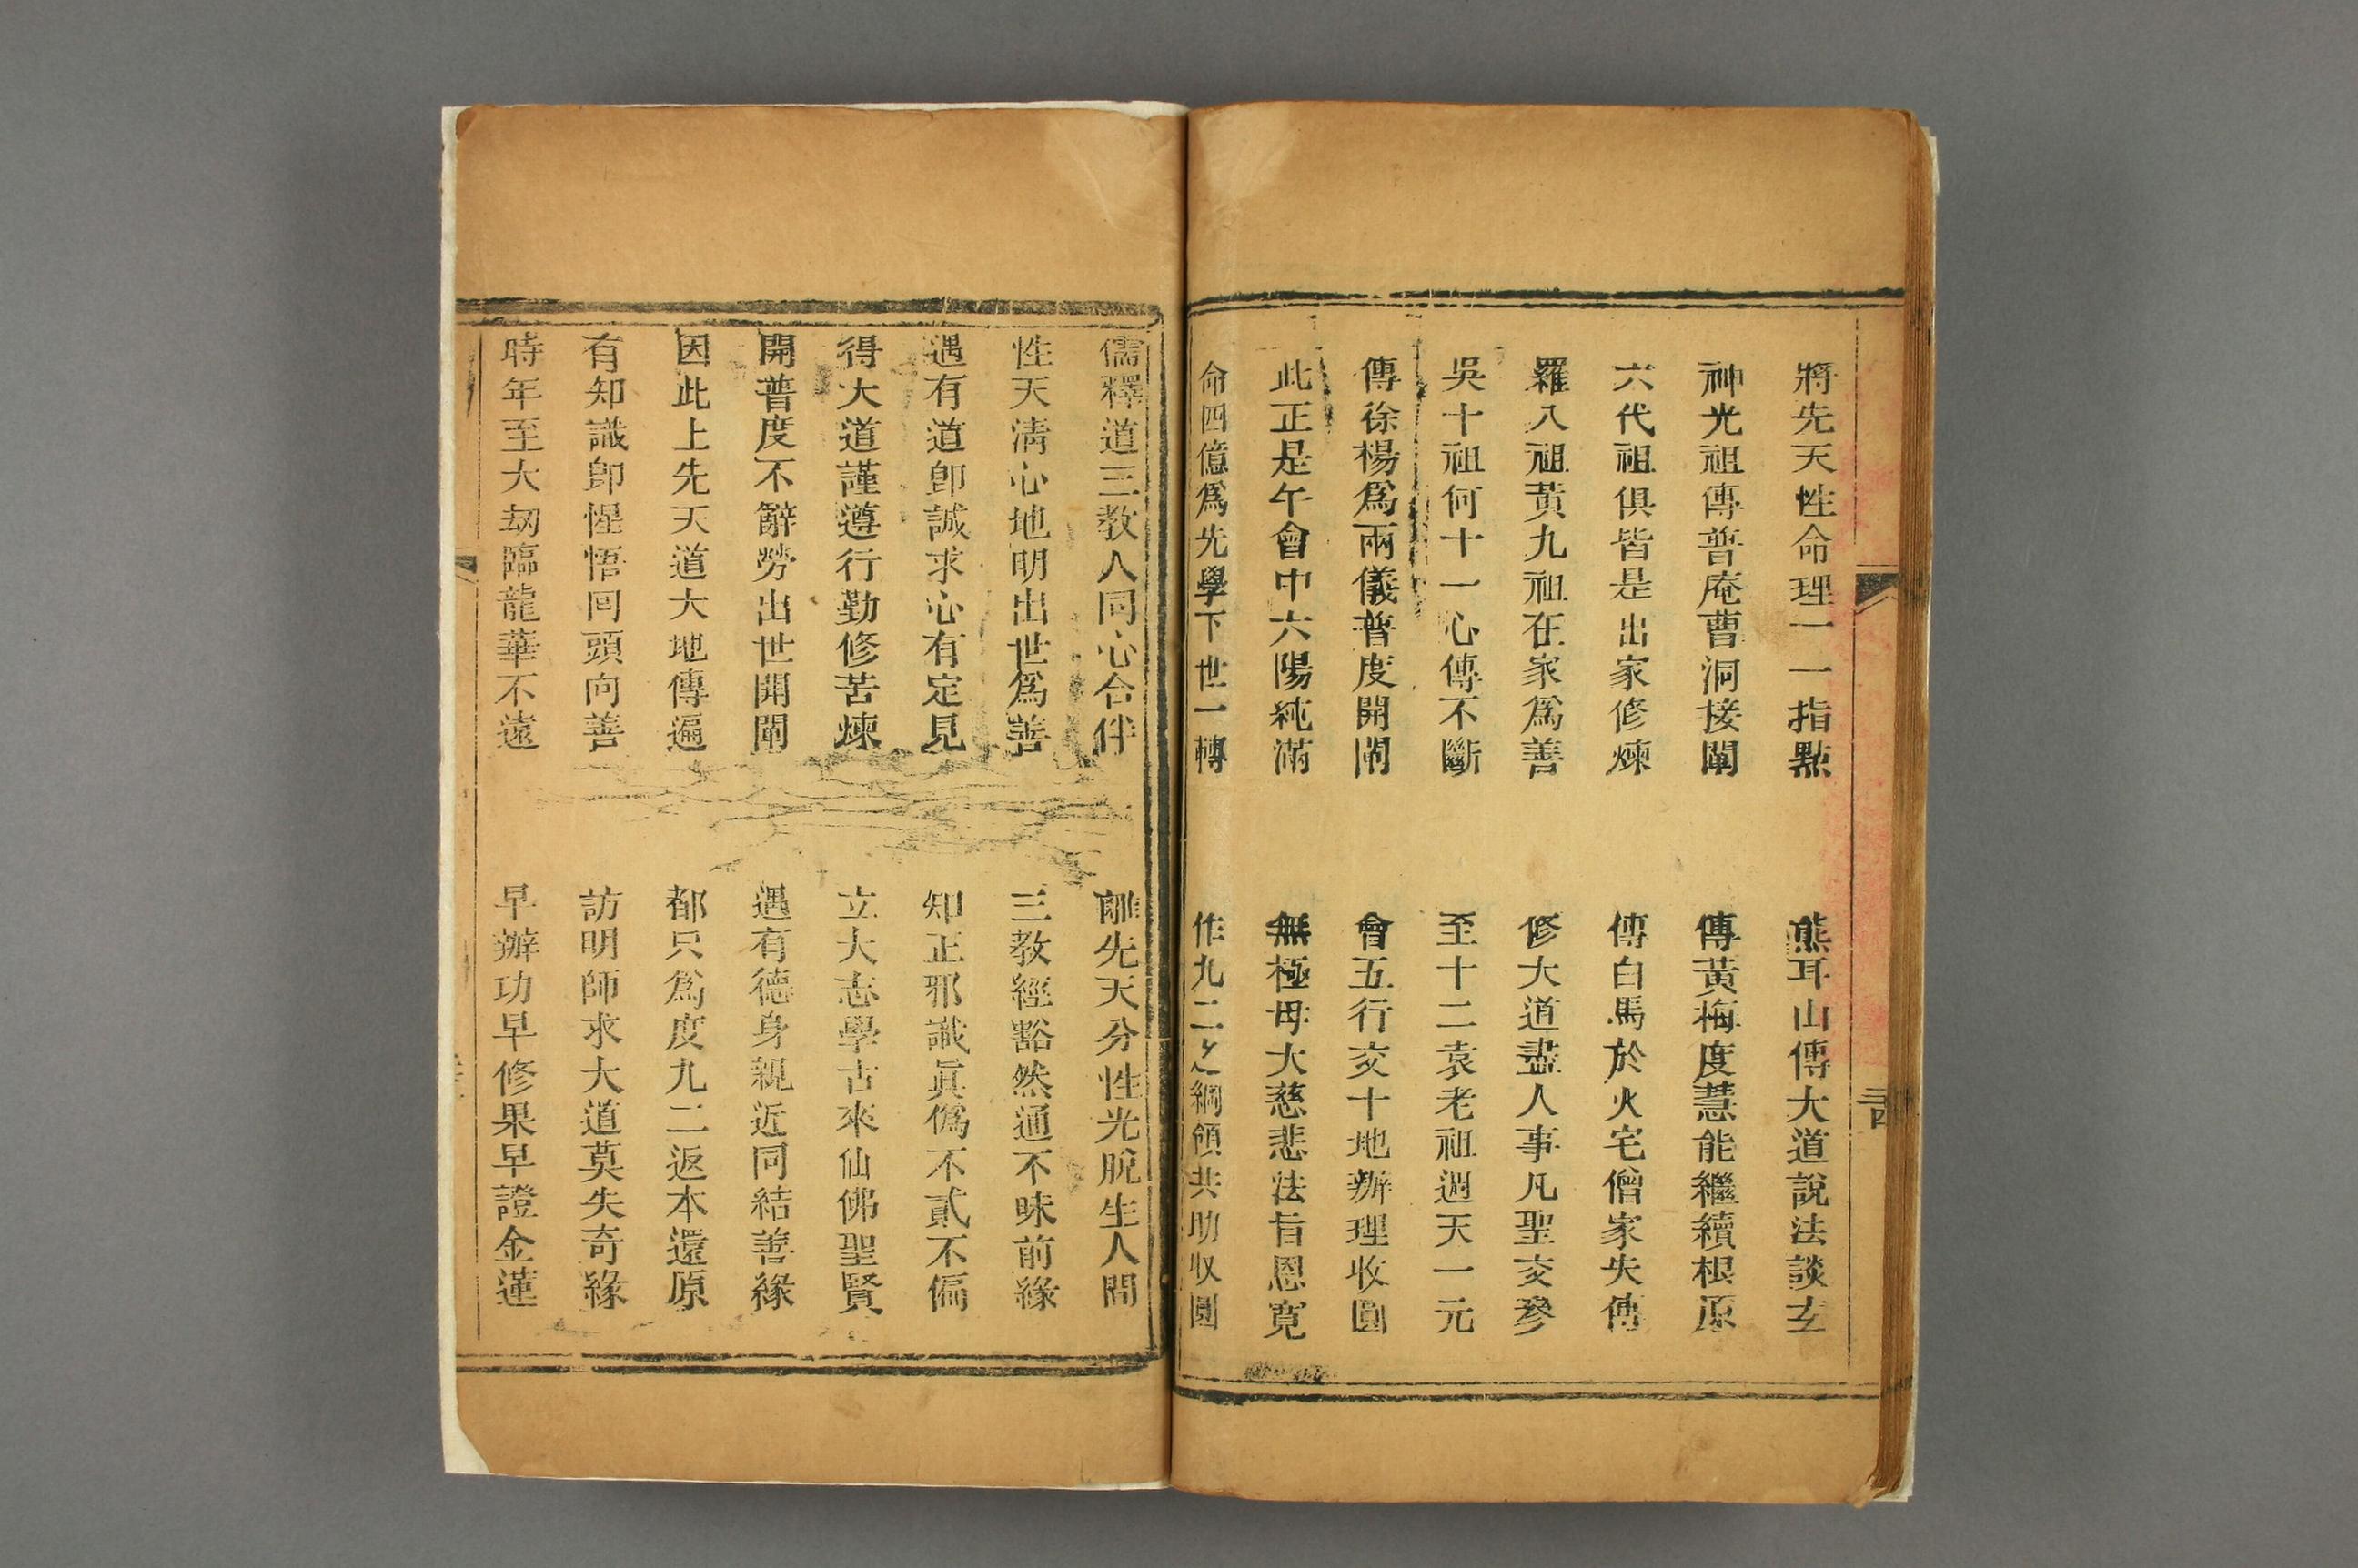 將先天性命理一一指點　熊耳山傳大道說法談玄
神光祖傳普庵曹洞接闡　傳黃梅度慧能繼續根原
六代祖俱皆是出家修煉　傳白馬於火宅僧家失傳
羅八祖黃九祖在家爲善　修大道盡人事凡聖交參
吳十祖何十一心傳不斷　至十二袁老祖週天一元
傳徐楊爲兩儀普度開闡　會五行交十地辦理收圓
此正是午會中六陽純滿　無極母大慈悲法旨恩寬
命四億爲先學下世一轉　作九二之綱領共助收圓
儒釋道三教人同心合伴　離先天分性光脫生人間
性天淸心地明出世爲善　三教經豁然通不昧前緣
遇有道卽誠求心有定見　知正邪識眞僞不貳不偏
得大道謹遵行勤修苦煉　立大志學古來仙佛聖賢
開普度不辭勞出世開闡　遇有德身親近同結善緣
因此上先天道大地傳遍　都只爲度九二返本還原
有知識卽惺悟回頭向善　訪明師求大道莫失奇緣
時年至大刼臨龍華不遠　早辦功早修果早證金蓮